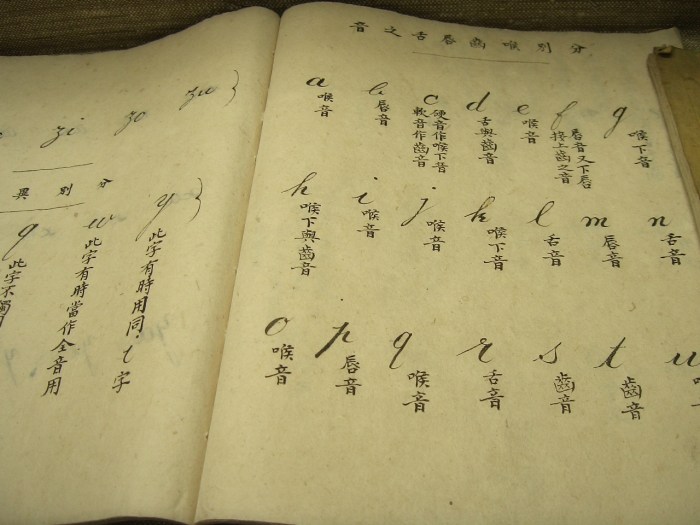 zi zo zu
分別異
y 此字有時用同i字
w 此字有時當作全音用
q 此字不獨用
分別喉齒唇舌之音
a b c d e f g
喉音
唇音
硬音作喉下音
軟音作齒音
舌與齒音
喉音
唇音又下唇
接上齒之音
喉下音
h i j k l m n
喉下與齒音
喉音
喉音
喉下音
舌音
唇音
舌音
o p q r s t u
喉音
唇音
喉音
舌音
齒音
齒音
喉